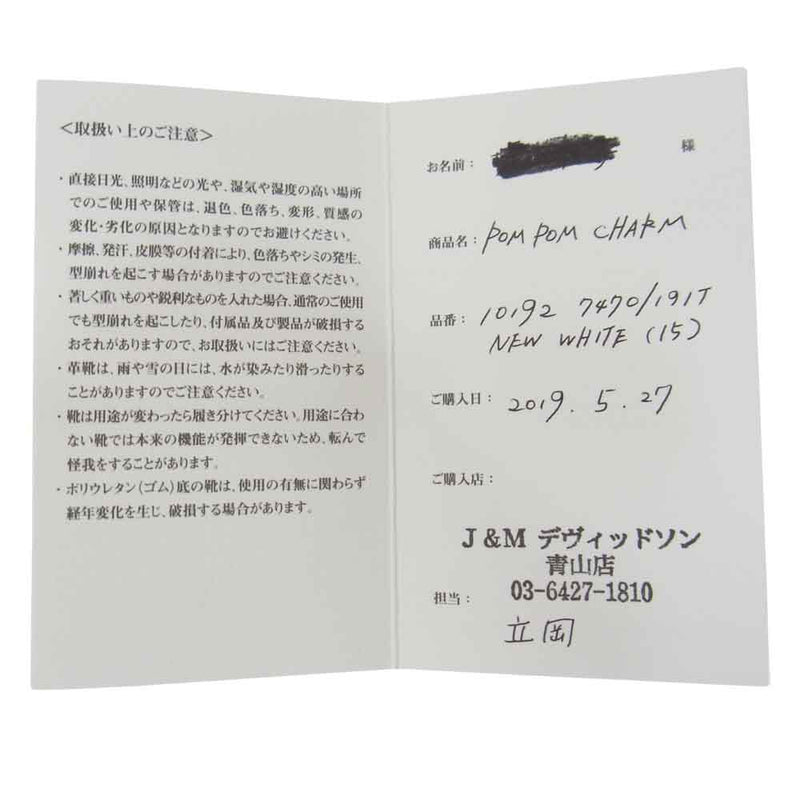 ＜取扱い上のご注意＞
・直接日光、照明などの光や、湿気や湿度の高い場所
でのご使用や保管は、退色、色落ち、変形、質感の
変化・劣化の原因となりますのでお避けください。
・摩擦、発汗、皮膜等の付着により、色落ちやシミの発生、
型崩れを起こす場合がありますのでご注意ください。
・著しく重いものや鋭利なものを入れた場合、通常のご使用
でも型崩れを起こしたり、付属品及び製品が破損する
おそれがありますので、お取扱いにはご注意ください。
・革靴は、雨や雪の日には、水が染みたり滑ったりする
ことがありますのでご注意ください。
・靴は用途が変わったら履き分けてください。用途に合わ
ない靴では本来の機能が発揮できないため、転んで
怪我をすることがあります。
・ポリウレタン（ゴム）底の靴は、使用の有無に関わらず
経年変化を生じ、破損する場合があります。
お名前： 様
商品名： POM POM CHARM
品番： 10192 7470/191T
NEW WHITE (15)
ご購入日： 2019. 5. 27
ご購入店：
J＆M デヴィッドソン
青山店
03-6427-1810
担当：
立岡